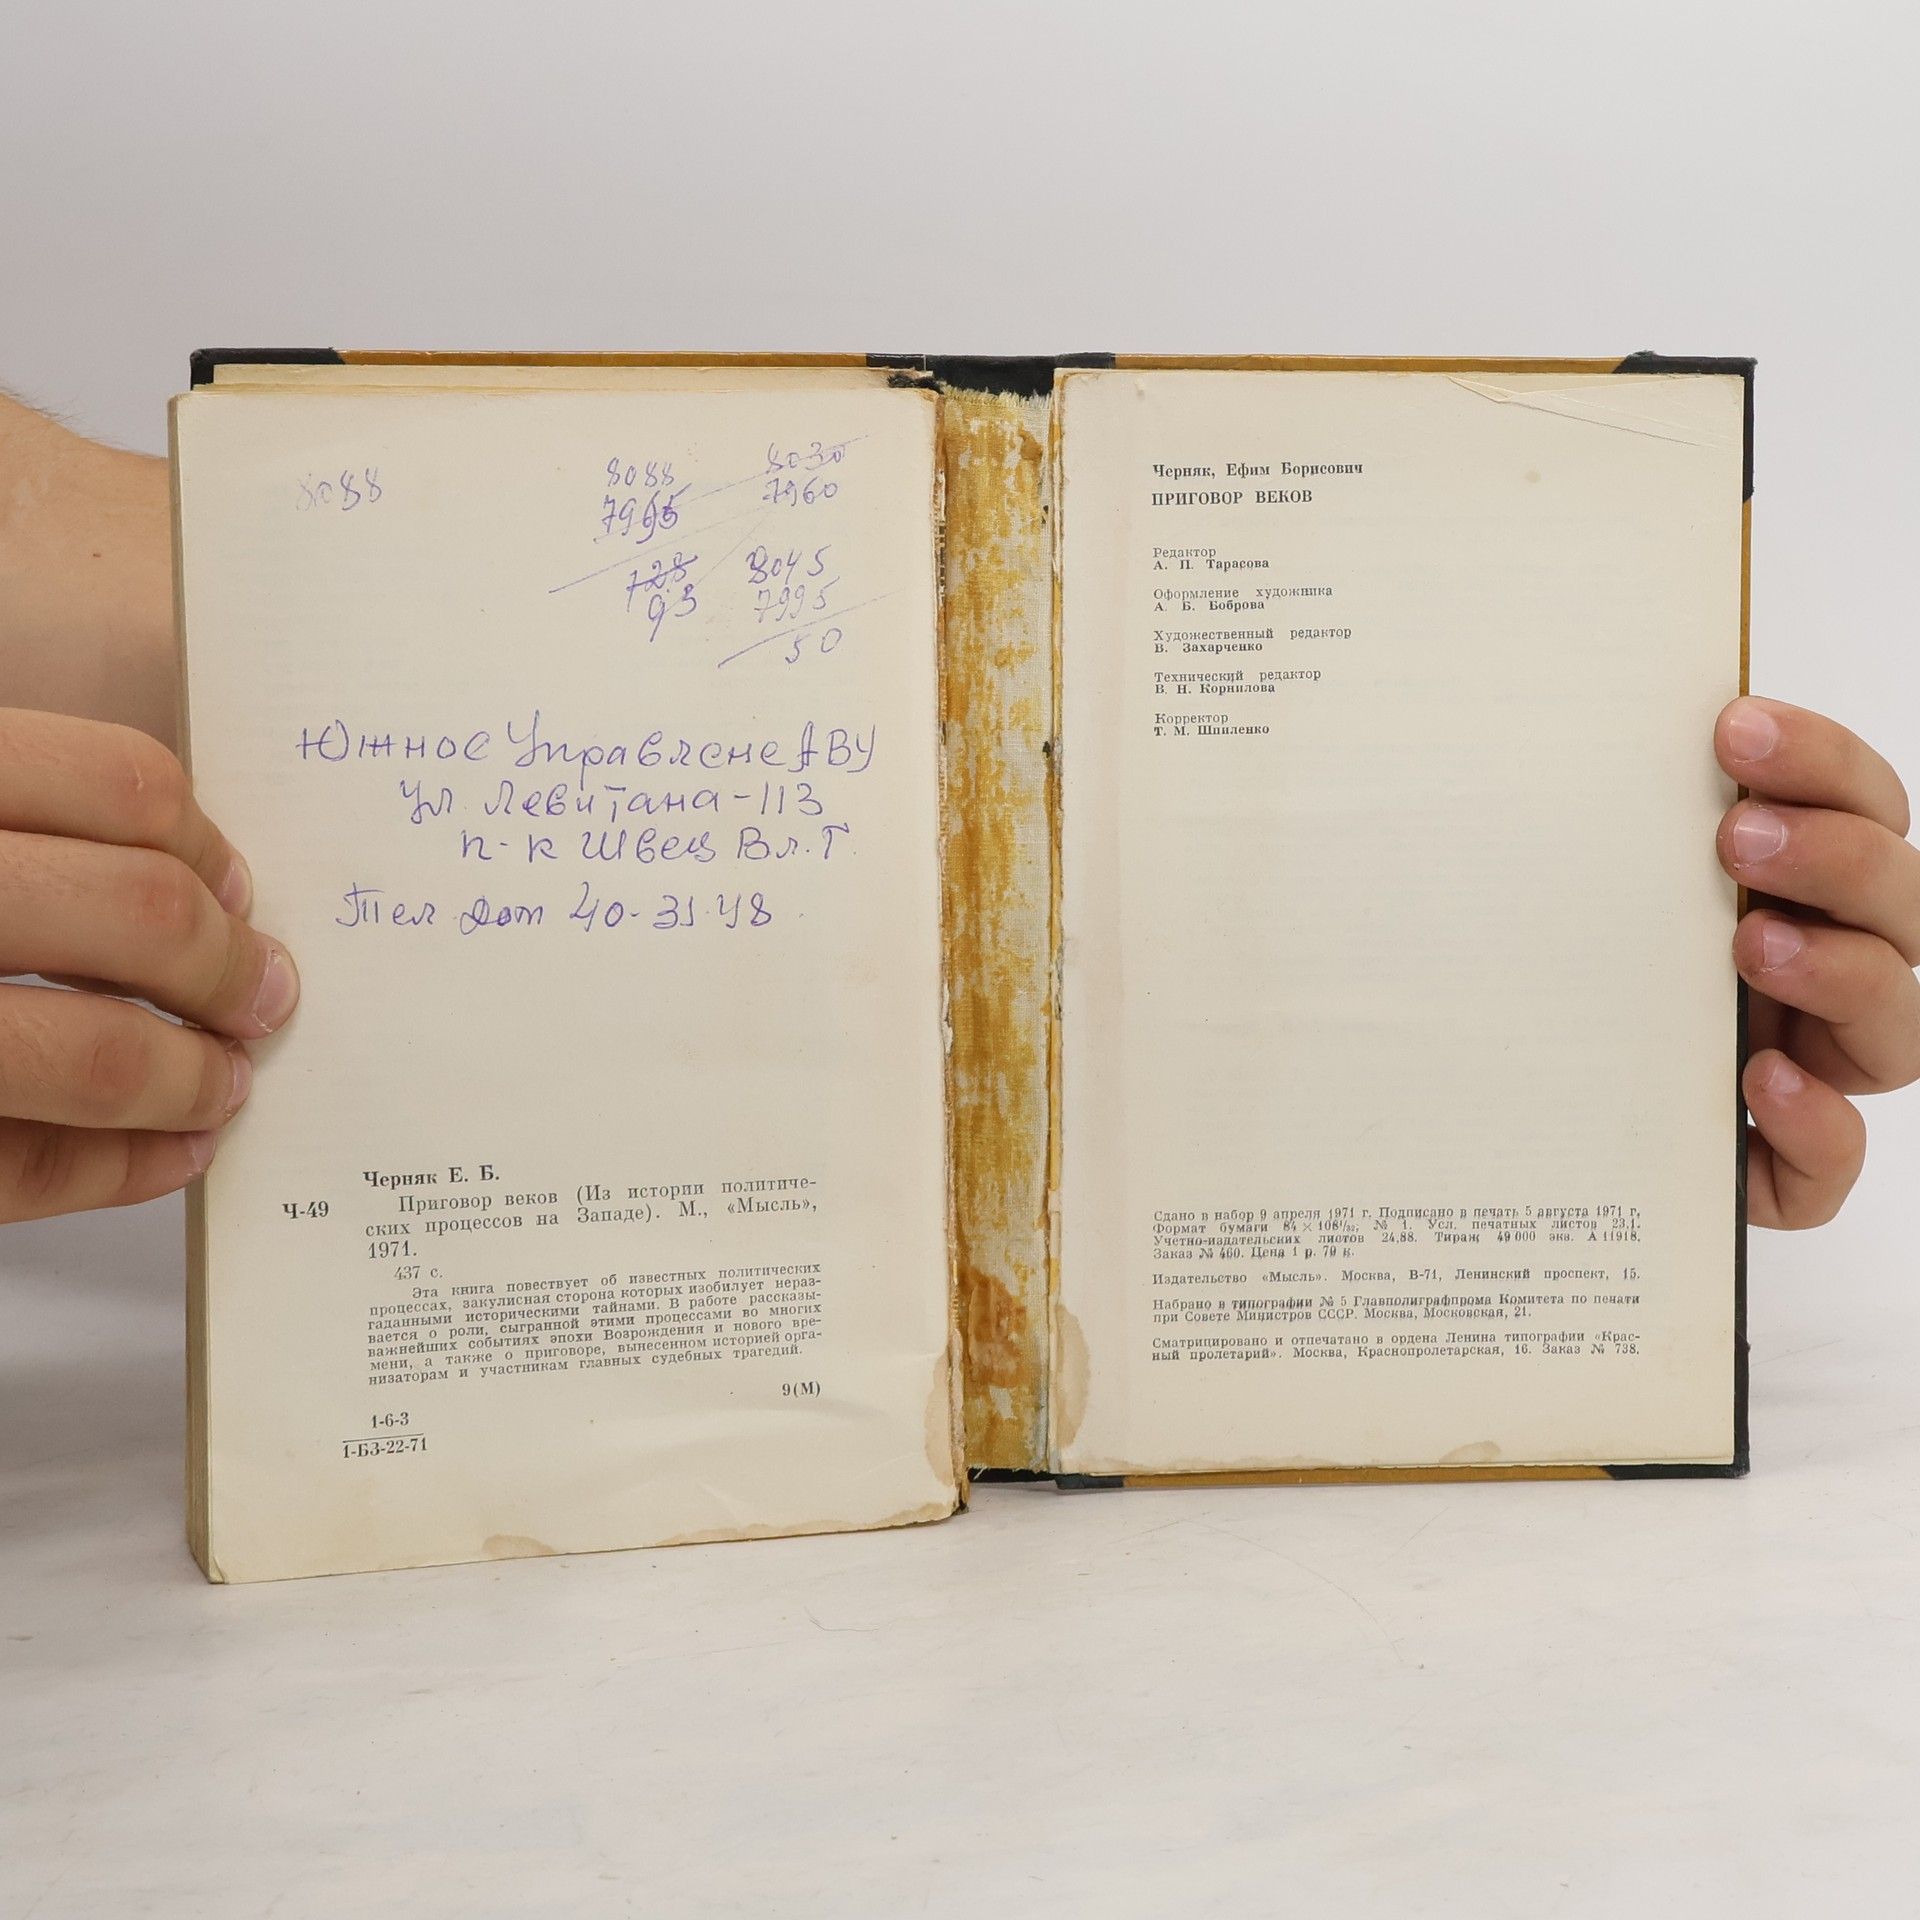 8088
8088
7995
128
93
8030
7960
8045
7995
50
Южное Управлене АВУ
Ул. Левитана-113
п-к Швец Вл.Г.
Тел дом 40-31-48
Черняк Е. Б.
Ч-49
Приговор веков (Из истории политиче-
ских процессов на Западе). М., «Мысль»,
1971.
437 с.
Эта книга повествует об известных политических
процессах, закулисная сторона которых изобилует нераз-
гаданными историческими тайнами. В работе рассказы-
вается о роли, сыгранной этими процессами во многих
важнейших событиях эпохи Возрождения и нового вре-
мени, а также о приговоре, вынесенном историей орга-
низаторам и участникам главных судебных трагедий.
9(М)
1-6-3
1-БЗ-22-71
Черняк, Ефим Борисович
ПРИГОВОР ВЕКОВ
Редактор
А. П. Тарасова
Оформление художника
А. Б. Боброва
Художественный редактор
В. Захарченко
Технический редактор
В. Н. Корнилова
Корректор
Т. М. Шпиленко
Сдано в набор 9 апреля 1971 г. Подписано в печать 5 августа 1971 г.
Формат бумаги 84×108¹/₃₂, № 1. Усл. печатных листов 23,1.
Учетно-издательских листов 24,88. Тираж 49 000 экз. А 11918.
Заказ № 460. Цена 1 р. 79 к.
Издательство «Мысль». Москва, В-71, Ленинский проспект, 15.
Набрано в типографии № 5 Главполиграфпрома Комитета по печати
при Совете Министров СССР. Москва, Московская, 21.
Сматрицировано и отпечатано в ордена Ленина типографии «Крас-
ный пролетарий». Москва, Краснопролетарская, 16. Заказ № 738.